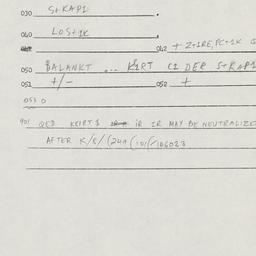 030 S+KAP1.
040 LOS+1K.
042 + Z+1RE, PC+1K
050 BALANKT ... KIRT C1 DER S+KAP1
051 +/- 052 +
053 0
901 QED KEIRT$ IR 2R MAY BE NEUTRALIZE
AFTER K/E/(24A(101(/106023